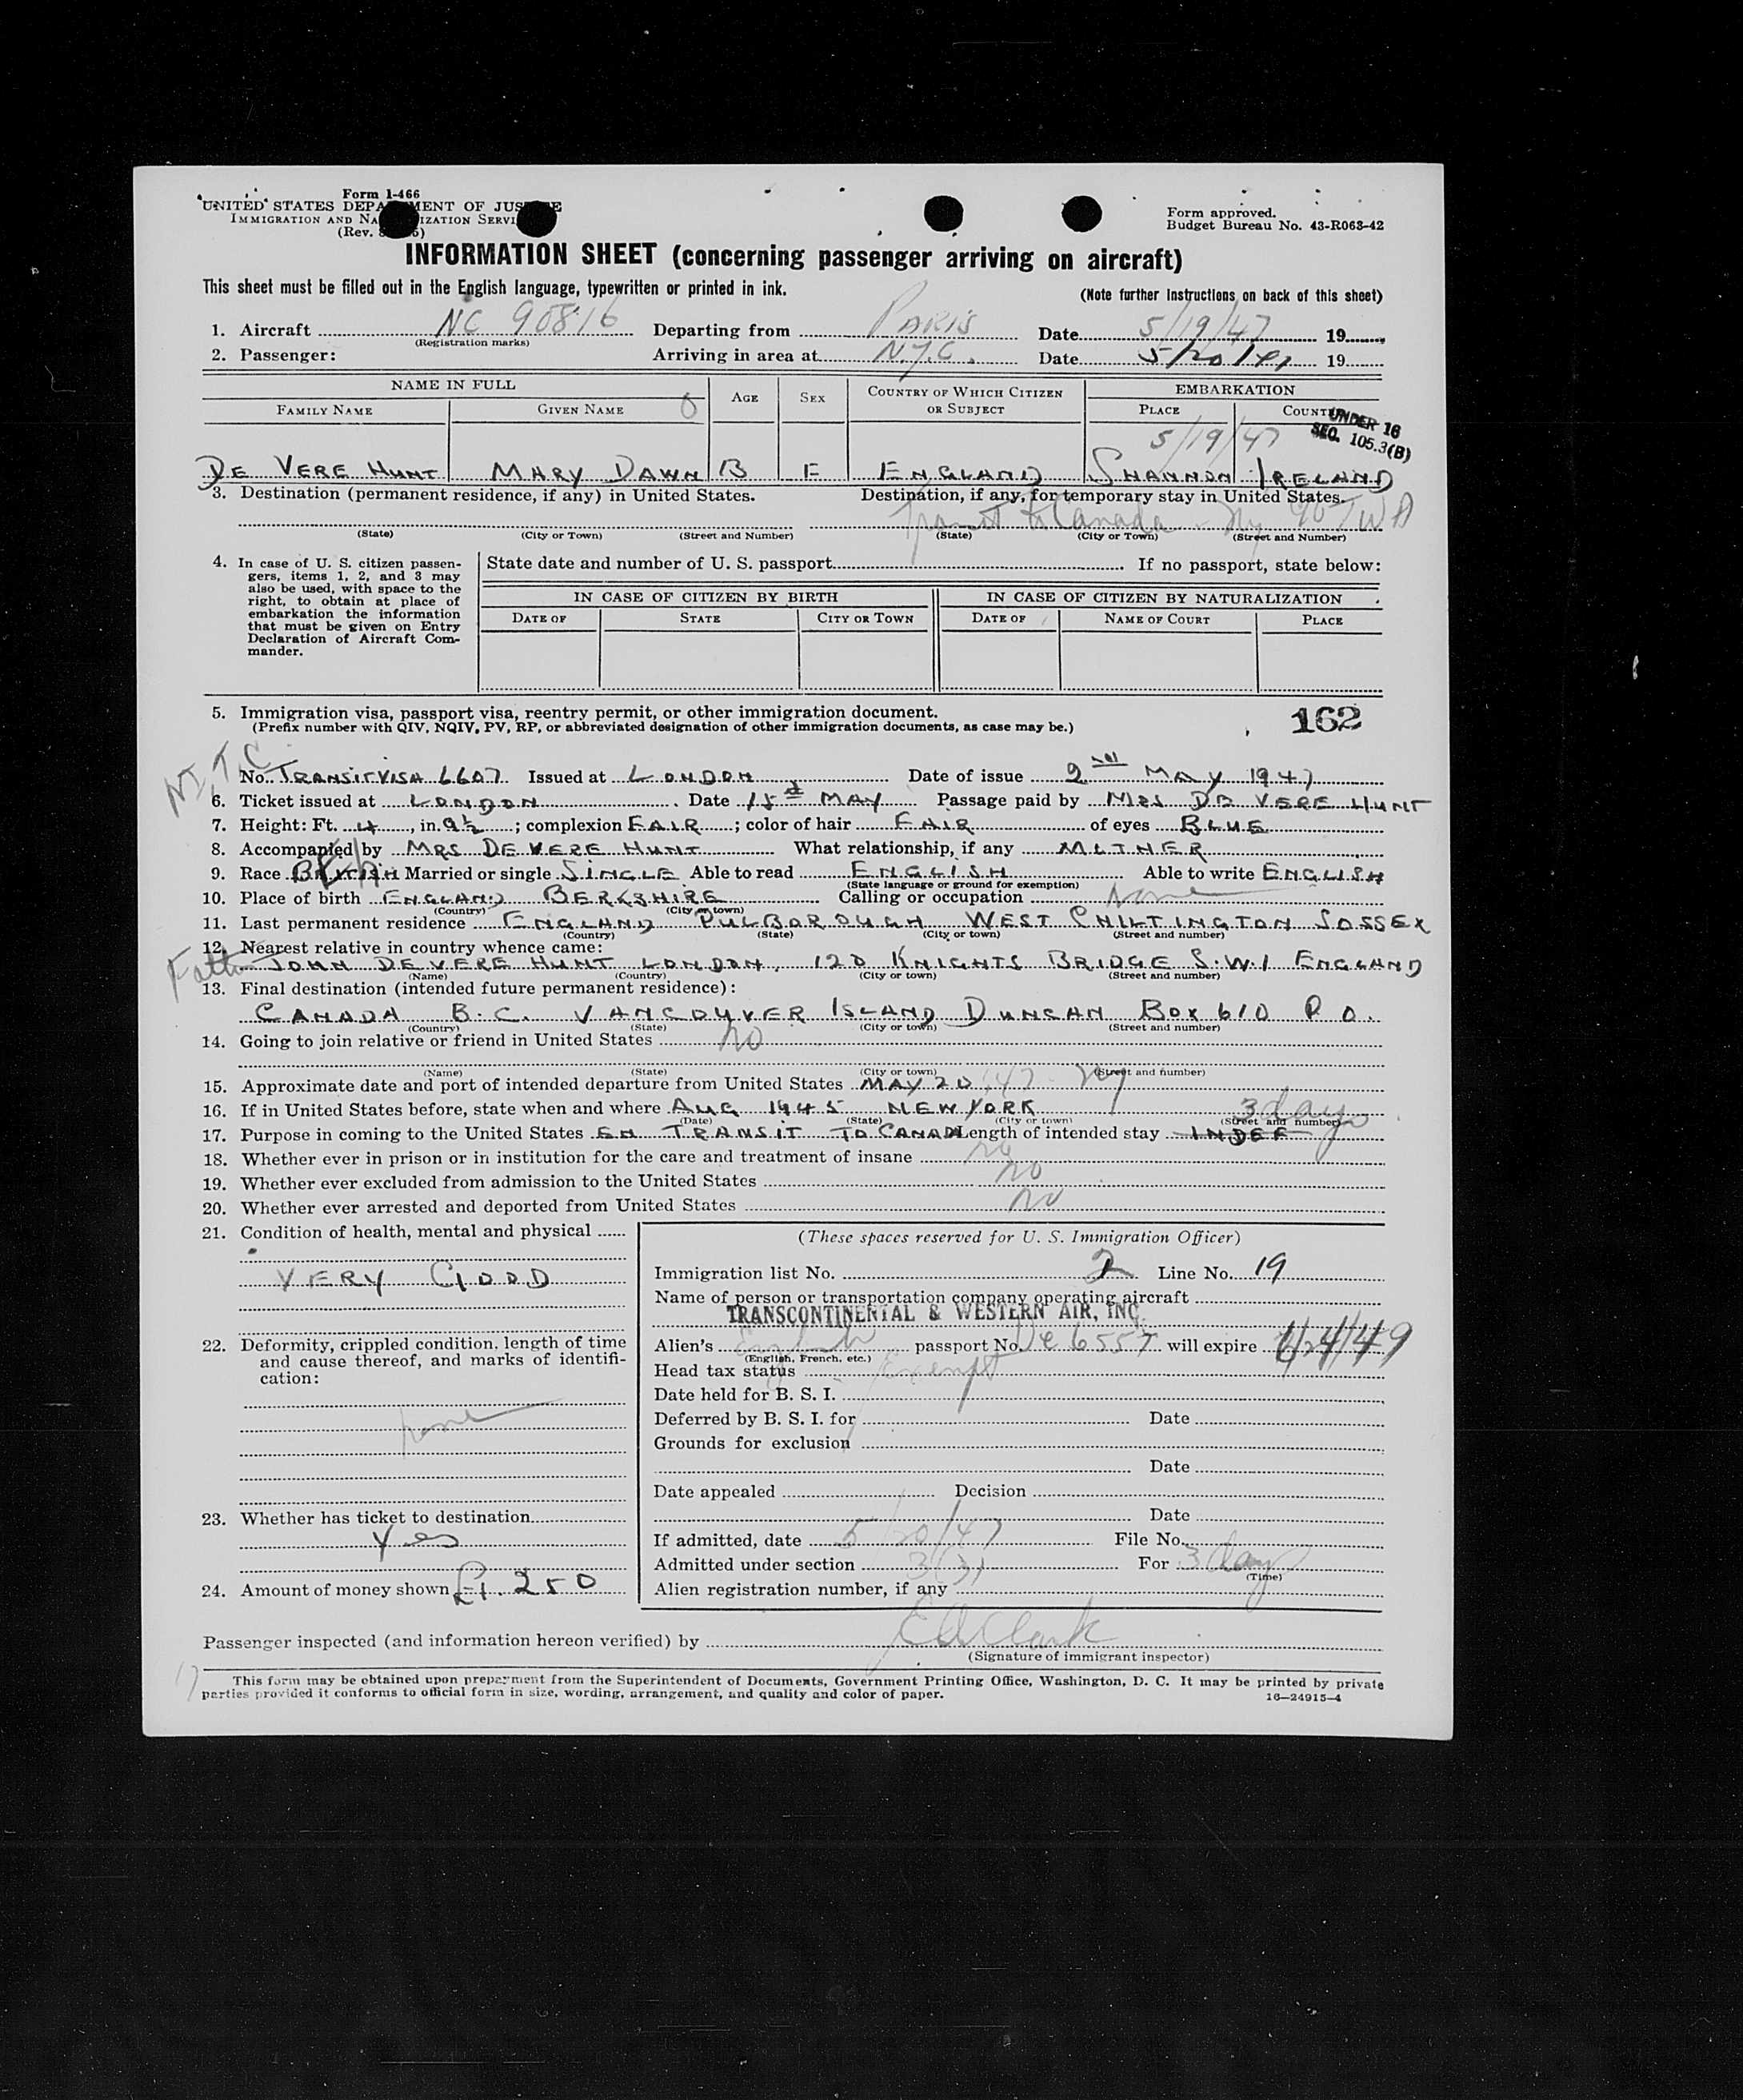 Form I-466
UNITED STATES DEPARTMENT OF JUSTICE
IMMIGRATION AND NATURALIZATION SERVICE
(Rev.
Form approved.
Budget Bureau No. 43-R063-42
INFORMATION SHEET (concerning passenger arriving on aircraft)
This sheet must be filled out in the English language, typewritten or printed in ink.
(Note further instructions on back of this sheet)
1. Aircraft NC 90816 Departing from PARIS Date 5/19/47 19
(Registration marks)
2. Passenger: Arriving in area at N.Y.C. Date 5/20/47 19
NAME IN FULL AGE SEX COUNTRY OF WHICH CITIZEN OR SUBJECT EMBARKATION
FAMILY NAME GIVEN NAME PLACE COUNTRY
UNDER 16
SEC. 105.3(B)
5/19/47
DE VERE HUNT MARY DAWN 8 F ENGLAND SHANNON IRELAND
3. Destination (permanent residence, if any) in United States. Destination, if any, for temporary stay in United States.
Transit to Canada - Ny TWA
(State) (City or Town) (Street and Number) (State) (City or Town) (Street and Number)
4. In case of U. S. citizen passengers, items 1, 2, and 3 may also be used, with space to the right, to obtain at place of embarkation the information that must be given on Entry Declaration of Aircraft Commander.
State date and number of U. S. passport If no passport, state below:
IN CASE OF CITIZEN BY BIRTH IN CASE OF CITIZEN BY NATURALIZATION
DATE OF STATE CITY OR TOWN DATE OF NAME OF COURT PLACE
5. Immigration visa, passport visa, reentry permit, or other immigration document.
(Prefix number with QIV, NQIV, PV, RP, or abbreviated designation of other immigration documents, as case may be.)
162
No. TRANSIT VISA 6607 Issued at LONDON Date of issue 2nd MAY 1947
6. Ticket issued at LONDON Date 15 MAY Passage paid by MRS DE VERE HUNT
7. Height: Ft. 4, in. 9½; complexion FAIR; color of hair FAIR of eyes BLUE
8. Accompanied by MRS DE VERE HUNT What relationship, if any MOTHER
9. Race BRITISH Married or single SINGLE Able to read ENGLISH Able to write ENGLISH
(State language or ground for exemption)
10. Place of birth ENGLAND BERKSHIRE Calling or occupation None
(Country) (City or town)
11. Last permanent residence ENGLAND PULBOROUGH WEST CHILTINGTON SUSSEX
(Country) (State) (City or town) (Street and number)
12. Nearest relative in country whence came:
Father JOHN DE VERE HUNT LONDON, 120 KNIGHTS BRIDGE S.W.1 ENGLAND
(Name) (Country) (City or town) (Street and number)
13. Final destination (intended future permanent residence):
CANADA B.C. VANCOUVER ISLAND DUNCAN BOX 610 P.O.
(Country) (State) (City or town) (Street and number)
14. Going to join relative or friend in United States no
(Name) (State) (City or town) (Street and number)
15. Approximate date and port of intended departure from United States MAY 20 /47 Ny
16. If in United States before, state when and where AUG 1945 NEW YORK
(Date) (State) (City or town) (Street and number)
3 days
17. Purpose in coming to the United States EN TRANSIT TO CANADA Length of intended stay INDEF
18. Whether ever in prison or in institution for the care and treatment of insane no
19. Whether ever excluded from admission to the United States no
20. Whether ever arrested and deported from United States no
21. Condition of health, mental and physical
VERY GOOD
22. Deformity, crippled condition, length of time and cause thereof, and marks of identification:
none
23. Whether has ticket to destination
Yes
24. Amount of money shown £1.250
(These spaces reserved for U. S. Immigration Officer)
Immigration list No. 2 Line No. 19
Name of person or transportation company operating aircraft
TRANSCONTINENTAL & WESTERN AIR, INC.
Alien's English passport No. De 6557 will expire 6/24/49
(English, French, etc.)
Head tax status Exempt
Date held for B. S. I.
Deferred by B. S. I. for Date
Grounds for exclusion
Date
Date appealed Decision
Date
If admitted, date 5/20/47 File No.
Admitted under section 3(3) For 3 days
(Time)
Alien registration number, if any
Passenger inspected (and information hereon verified) by E A Clark
(Signature of immigrant inspector)
17
This form may be obtained upon prepayment from the Superintendent of Documents, Government Printing Office, Washington, D. C. It may be printed by private
parties provided it conforms to official form in size, wording, arrangement, and quality and color of paper.
16—24915-4